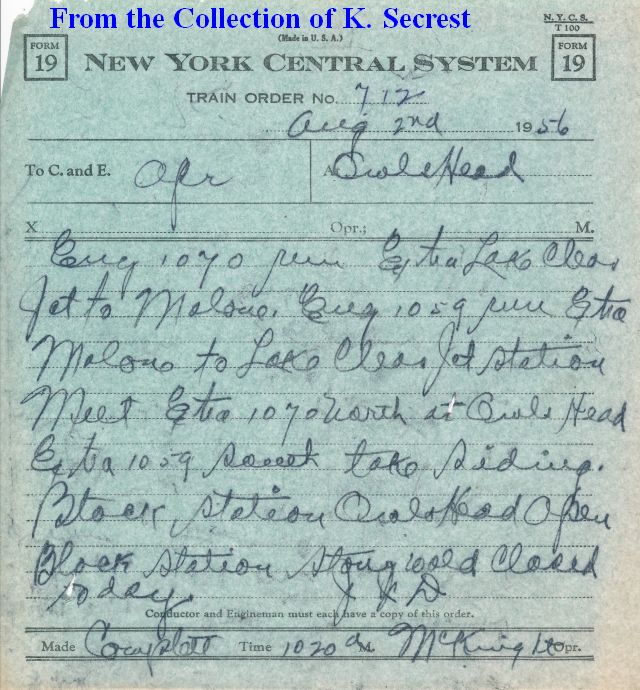 From the Collection of K. Secrest
N.Y.C.S.
T 100
(Made in U. S. A.)
FORM
19
NEW YORK CENTRAL SYSTEM
FORM
19
TRAIN ORDER No. 712
Aug 2nd 1956
To C. and E. Opr
At Owls Head
X Opr.; M.
Eng 1070 run Extra Lake Clear
Jct to Malone. Eng 1059 run Extra
Malone to Lake Clear Jct station
Meet Extra 1070 north at Owls Head
Extra 1059 south take siding.
Block station Owls Head Open
Block Station Stony Wold Closed
today.
Conductor and Engineman must each have a copy of this order.
Made Complett Time 1020 a M. McKnight Opr.